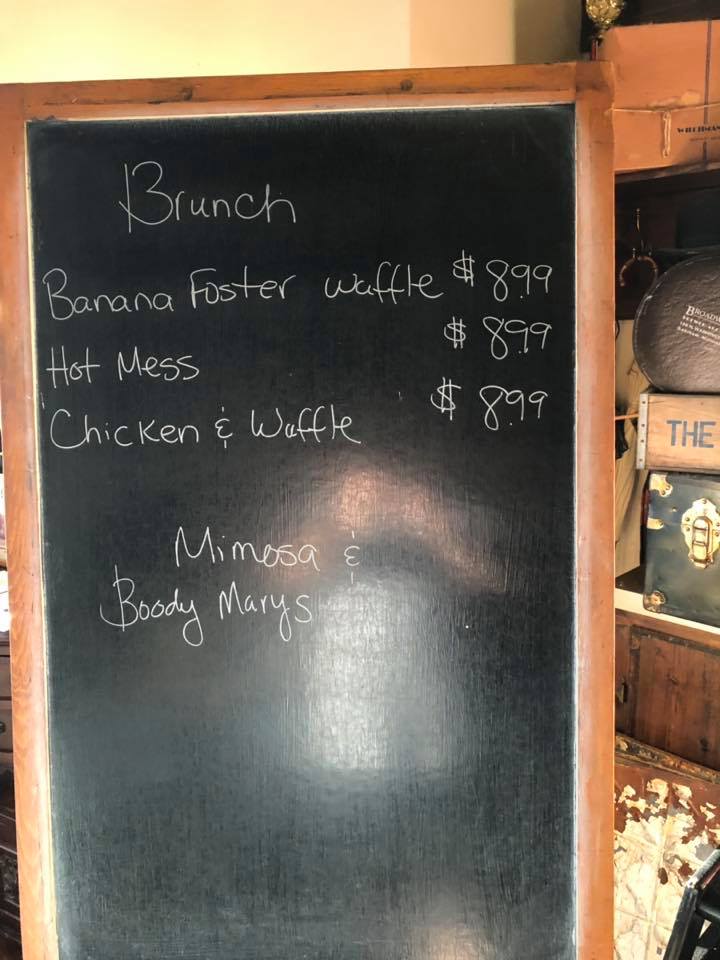 Brunch
Banana Foster Waffle $ 8.99
Hot Mess $ 8.99
Chicken & Waffle $ 8.99
Mimosa &
Boody Marys
THE